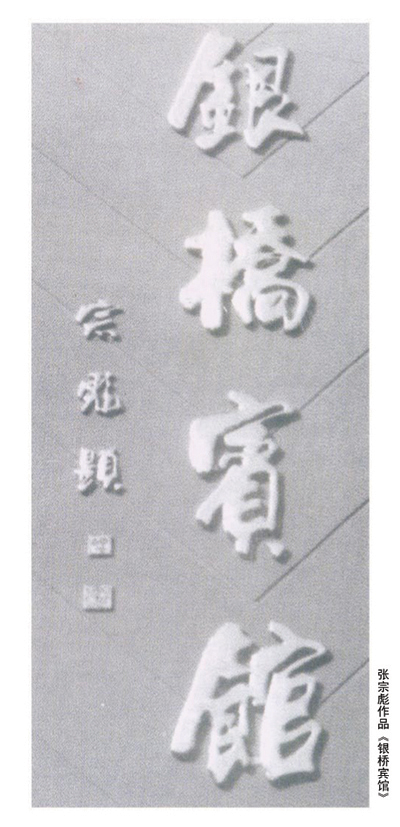 銀橋賓館
宗彪題
张宗彪作品《银桥宾馆》